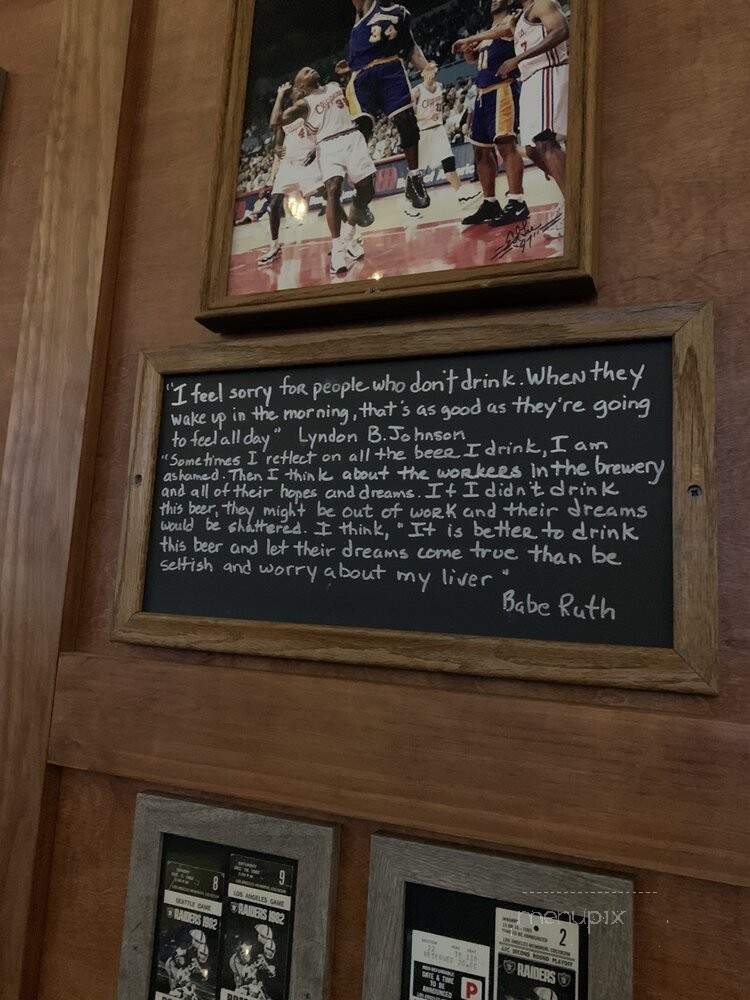 34
Clippers
"I feel sorry for people who don't drink. When they
wake up in the morning, that's as good as they're going
to feel all day" Lyndon B. Johnson
"Sometimes I reflect on all the beer I drink, I am
ashamed. Then I think about the workers in the brewery
and all of their hopes and dreams. If I didn't drink
this beer, they might be out of work and their dreams
would be shattered. I think, "It is better to drink
this beer and let their dreams come true than be
selfish and worry about my liver"
Babe Ruth
8
SEATTLE GAME
RAIDERS 1982
9
LOS ANGELES GAME
RAIDERS 1982
DATE &
TIME
TO BE
ANNOUNCED
P
2
AFC SECOND ROUND PLAYOFF
RAIDERS
menupix